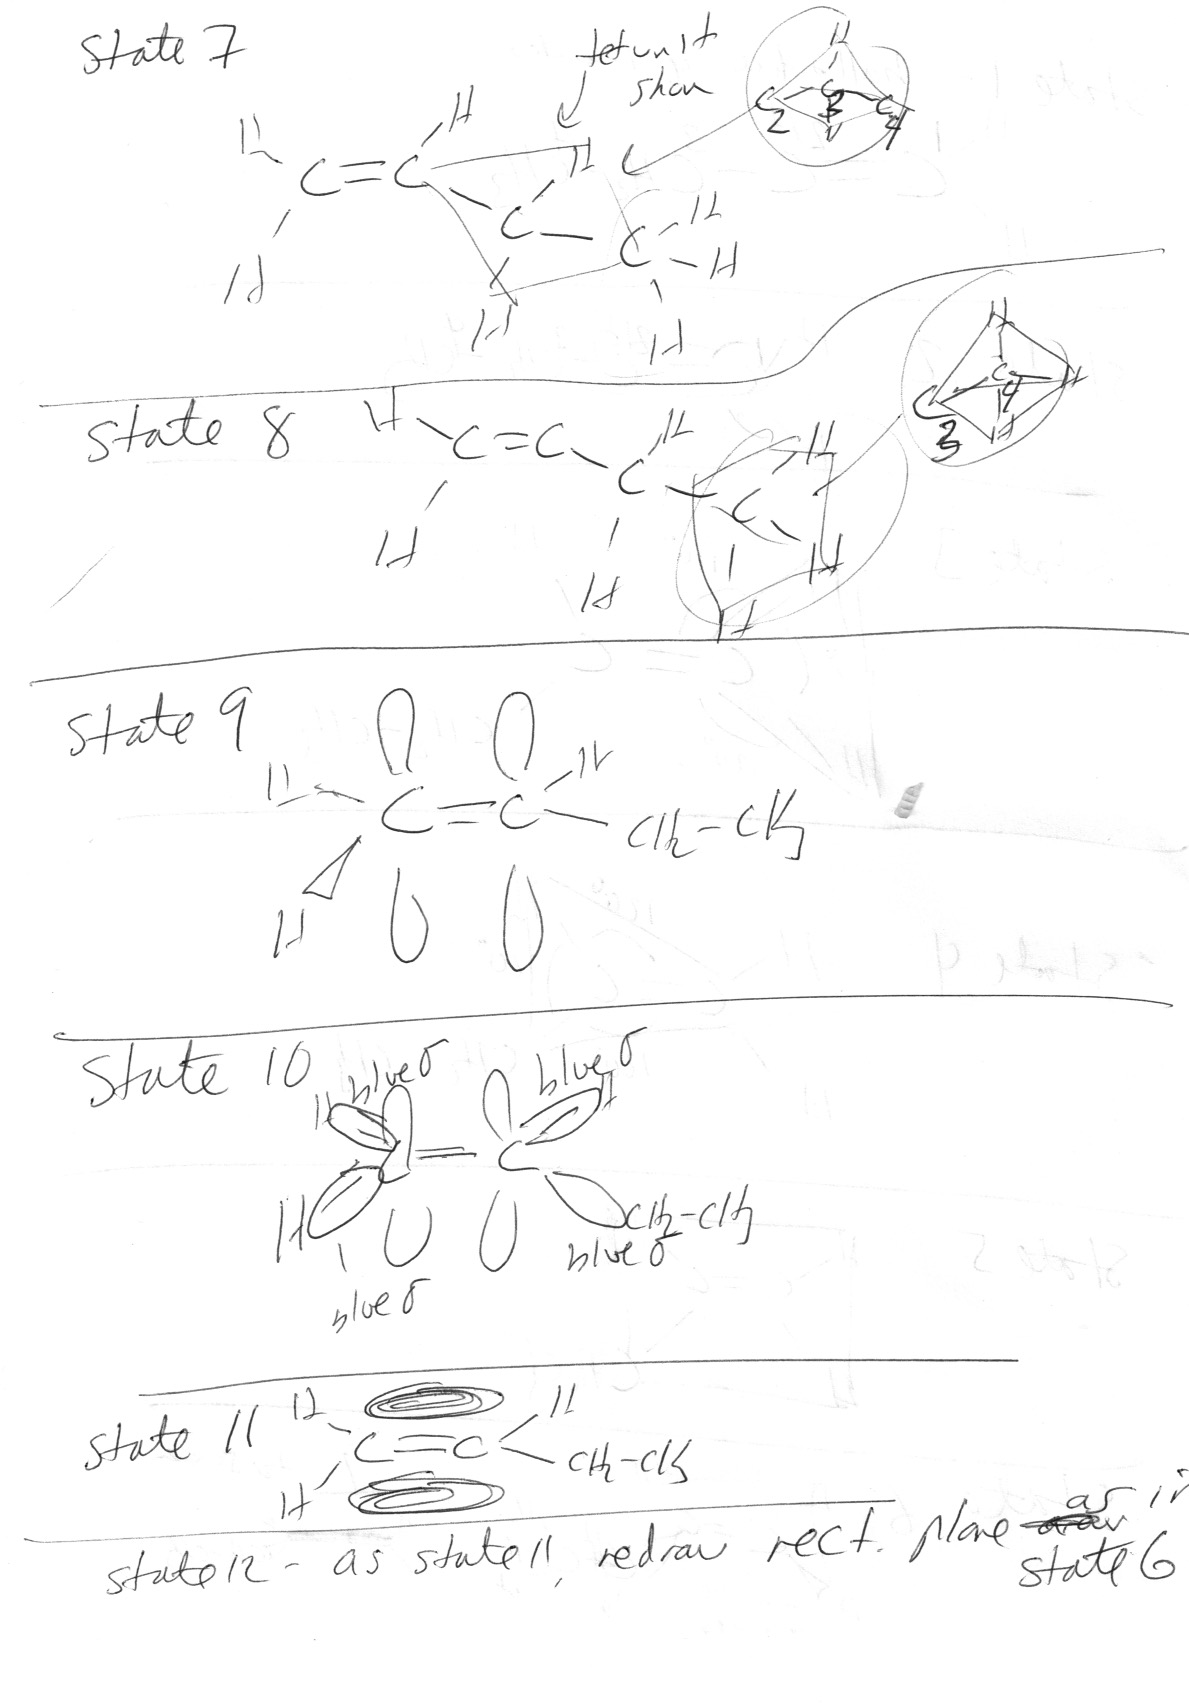 state 7
tet unit
show
H
C 3
C 2 C 4
H
H H
C=C H
C
C H
H
H
H H
state 8
H
C 4 H
C 3
H
H
C=C H
C H
C
H H
H
H
state 9
H H
C=C
CH2-CH3
H
state 10
blue σ blue σ
H H
C=C
H CH2-CH3
blue σ
blue σ
state 11
H H
C=C
CH2-CH3
H
state 12 - as state 11, redraw rect. plane as in
state 6